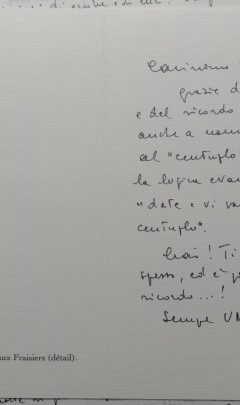 Carissimo
grazie d
e del ricordo
anche a nom
al "centuplo"
la logica evan
"date e vi sa
centuplo".
Ciao! Ti
spesso, ed è
ricordo...!
Sempre UN
aux Fraisiers (détail).